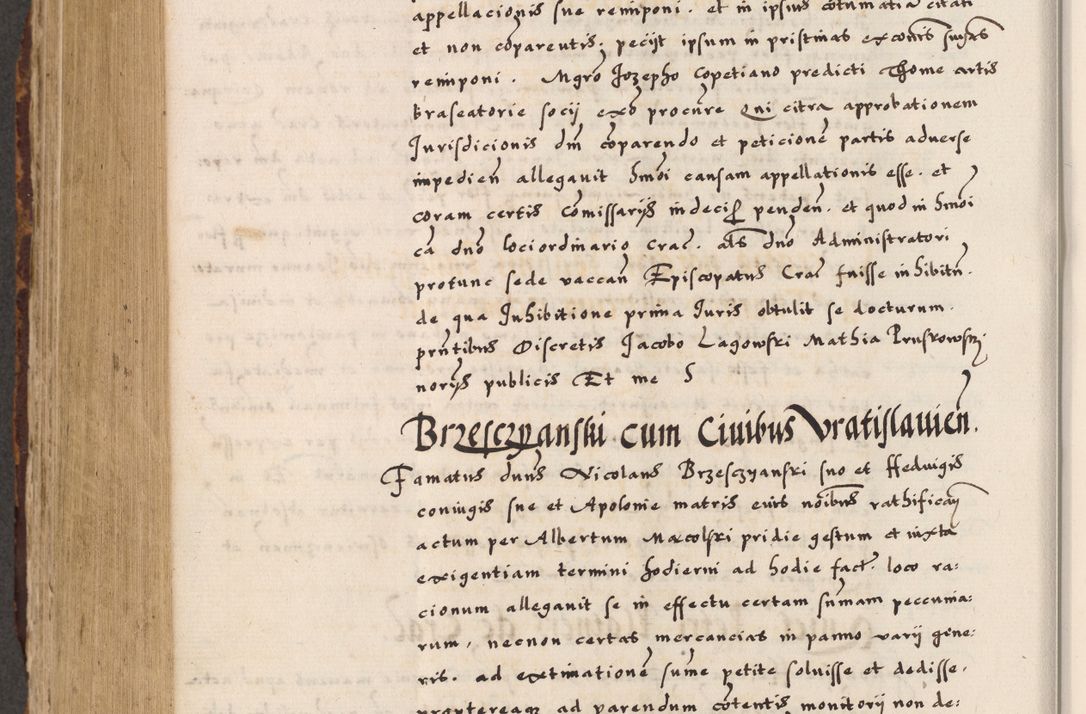 appellacionis sue reimponi. et in ipsius cōtumatiā citati
et non cōparentis, pecijt ipsum in pristinas excōnis
reimponi. Mgro Jozepho Copetiano predicti Thome artis
braseatorie socij exō procūre Qui citra approbationem
Jurisdicionis dm̄ cōparendo et peticionē partis aduerse
impedien̄ allegauit hmōi causam appellationis esse. et
coram certis cōmissarijs indecis̄ penden̄. et quod in hmōi
cā dnō lociordinario Crac. als dnō Administratori
protunc sede vaccan̄ Episcopatus Crac̄ fuisse inhibitū.
de qua Inhibitione prima Iuris obtulit se docturum.
prn̄tibus Discretis Jacobo Lagowski Mathia Pruskowski
norijs publicis Et me S
Brzesczyanski cum Ciuibus Vratislauien̄.
Famatus dnūs Nicolaus Brzesczyanski suo et Heduigis
coniugis sue et Apolonie matris eius noībus rathifican̄
actum per Albertum Macolski pridie gestum et iuxta
exigentiam termini hodierni ad hodie fact̄. loco ra:
cionum allegauit se in effectu certam sūmam peccunia:
rum, necnon certas mercancias in panno varij gene:
ris. ad extimationē sume petite soluisse et dedisse.
propterea ad parendum cōtentis monitorij non de: